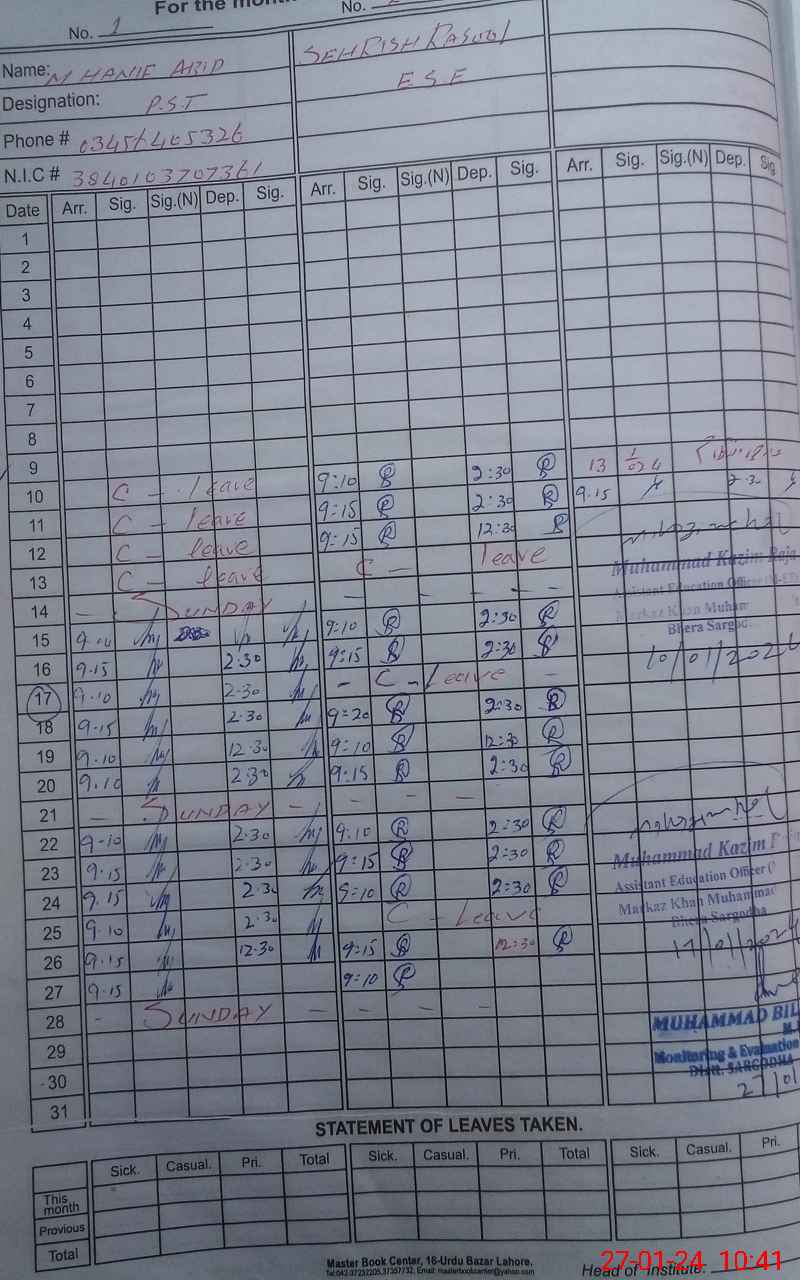 For the month
No. 1
No.
Name: M HANIF ABID
SEHRISH RASOOL
Designation: P.S.T
E.S.E
Phone # 03456405326
N.I.C # 3840103707361
Date Arr. Sig. Sig.(N) Dep. Sig. Arr. Sig. Sig.(N) Dep. Sig. Arr. Sig. Sig.(N) Dep. Sig
1
2
3
4
5
6
7
8
9
10 C - leave 9:10 2:30 9.15 2.30
11 C - leave 9:15 2:30
12 C - leave 9:15 12:30
13 C - leave C - leave
14 - SUNDAY - - - - -
15 9.10 9:10 2:30
16 9.15 2.30 9:15 2:30
17 9.10 2.30 - C - Leave -
18 9.15 2.30 9=20 2:30
19 9.10 12.30 9:10 12:30
20 9.10 2.30 9:15 2:30
21 - SUNDAY - - - -
22 9-10 2.30 9:10 2:30
23 9.15 2.30 9:15 2:30
24 9.15 2.30 9:10 2:30
25 9.10 2.30 C - Leave
26 9.15 12.30 9:15 12:30
27 9.15 9:10
28 - SUNDAY - - - -
29
30
31
Muhammad Kazim Raja
Assistant Education Officer
Markaz Khan Muham
Bhera Sargod
10/01/2024
Muhammad Kazim
Assistant Education Officer
Markaz Khan Muhammad
Bhera Sargodha
17/01/2024
MUHAMMAD BIL
Monitoring & Evaluation
Distt. SARGODHA
27/01
STATEMENT OF LEAVES TAKEN.
Sick. Casual. Pri. Total Sick. Casual. Pri. Total Sick. Casual. Pri.
This month
Previous
Total
Master Book Center, 16-Urdu Bazar Lahore.
Tel:042-37232205,37357732, Email: masterbookcenter@yahoo.com
Head of Institute:
27-01-24 10:41